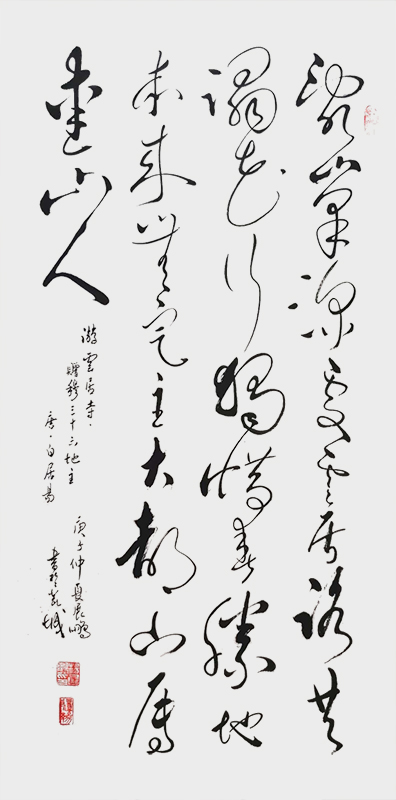 亂峯深處雲居路共
蹋花行獨惜春勝地
本来無定主大都山属
愛山人
游雲居寺·
赠穆三十六地主
唐·白居易
庚子仲夏鵬
書於城